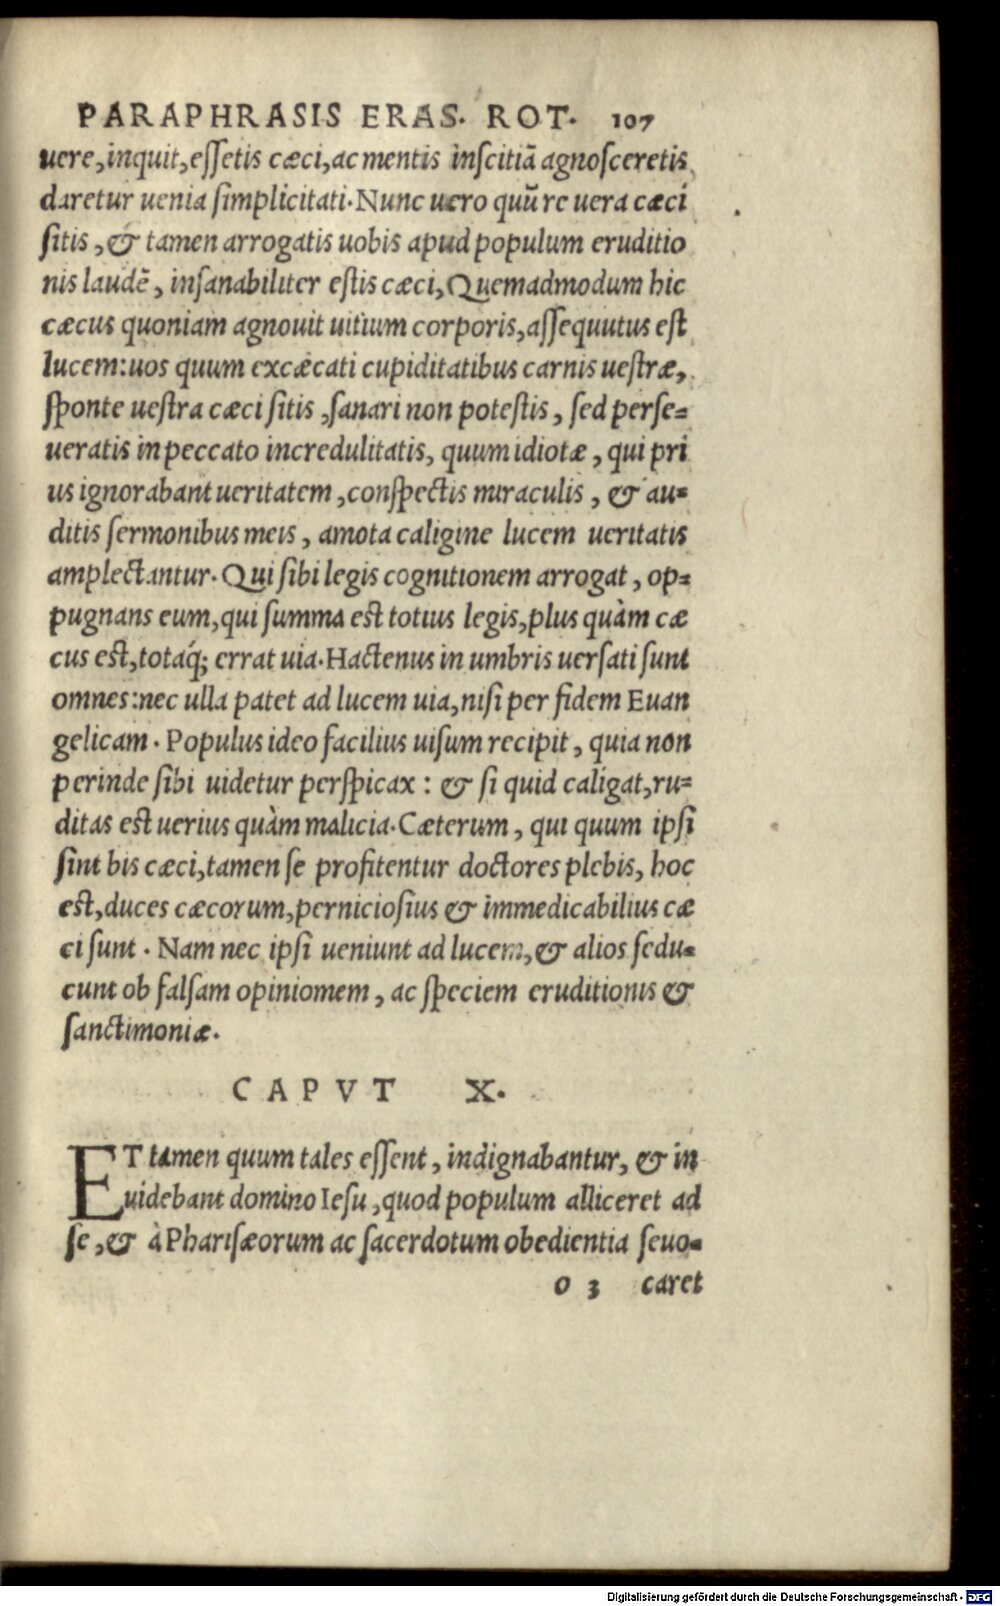 PARAPHRASIS ERAS. ROT. 107
uere, inquit, essetis cæci, ac mentis inscitiā agnosceretis,
daretur uenia simplicitati. Nunc uero quū re uera cæci
sitis, & tamen arrogatis uobis apud populum eruditio
nis laudē, insanabiliter estis cæci, Quemadmodum hic
cæcus quoniam agnouit uitium corporis, assequutus est
lucem: uos quum excæcati cupiditatibus carnis uestræ,
sponte uestra cæci sitis, sanari non potestis, sed perse=
ueratis in peccato incredulitatis, quum idiotæ, qui pri
us ignorabant ueritatem, conspectis miraculis, & au=
ditis sermonibus meis, amota caligine lucem ueritatis
amplectantur. Qui sibi legis cognitionem arrogat, op=
pugnans eum, qui summa est totius legis, plus quàm cæ
cus est, totáq; errat uia. Hactenus in umbris uersati sunt
omnes: nec ulla patet ad lucem uia, nisi per fidem Euan
gelicam. Populus ideo facilius uisum recipit, quia non
perinde sibi uidetur perspicax: & si quid caligat, ru=
ditas est uerius quàm malicia. Cæterum, qui quum ipsi
sint bis cæci, tamen se profitentur doctores plebis, hoc
est, duces cæcorum, perniciosius & immedicabilius cæ
ci sunt. Nam nec ipsi ueniunt ad lucem, & alios sedu=
cunt ob falsam opiniomem, ac speciem eruditionis &
sanctimoniæ.
CAPVT X.
ET tamen quum tales essent, indignabantur, & in
uidebant domino Iesu, quod populum alliceret ad
se, & à Pharisæorum ac sacerdotum obedientia seuo=
o 3 caret
Digitalisierung gefördert durch die Deutsche Forschungsgemeinschaft - DFG